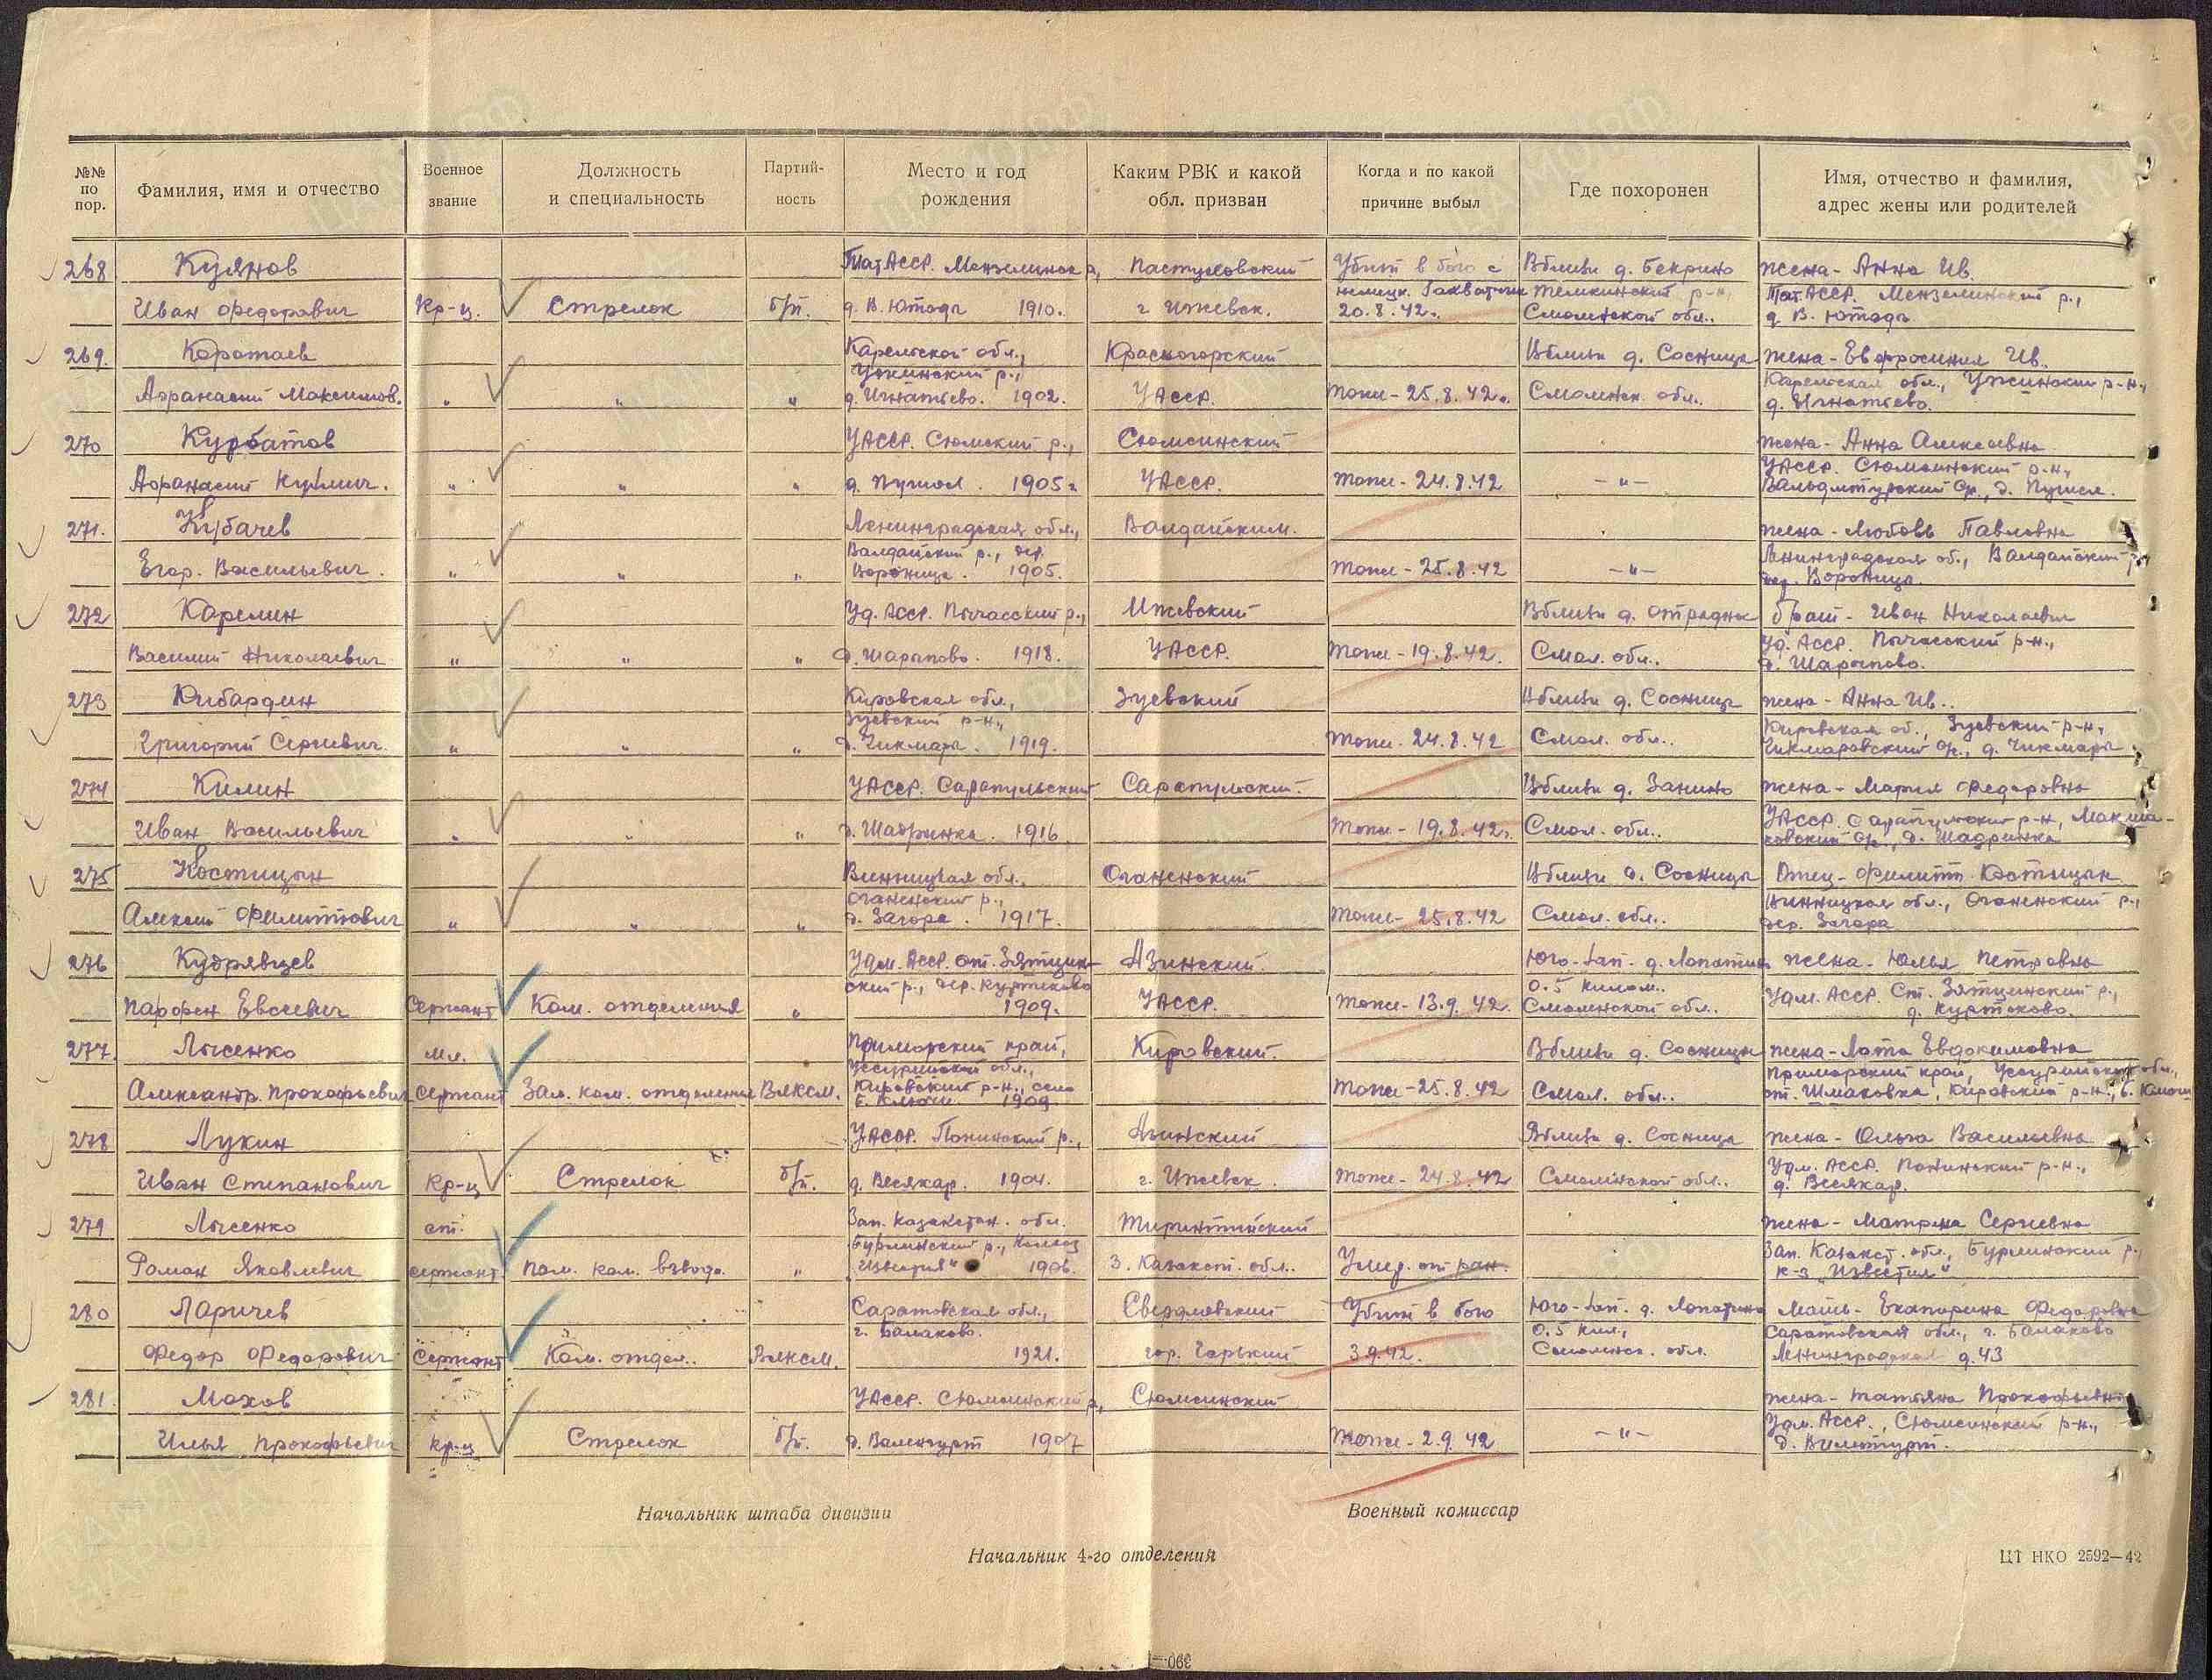 №№ по пор. Фамилия, имя и отчество Военное звание Должность и специальность Партийность Место и год рождения Каким РВК и какой обл. призван Когда и по какой причине выбыл Где похоронен Имя, отчество и фамилия, адрес жены или родителей
268 Куянов ТатАССР. Мензелинск р, Пастуховский Убит в бою с Вблизи д. Бекрино жена - Анна Ив.
Иван Федорович Кр-ц. Стрелок б/п. д. В. Юшады 1910. г Ижевск. 20.8.42. Смоленской обл.. Тат.АССР. Мензелинский р.,
269. Коротаев Карельской обл., Красногорский Вблизи д. Сосница жена - Евфросиния Ив.
Афанасий Максимов. " " " д. Игнатьево. 1902. УАССР. тоже - 25.8.42. Смоленск. обл.. д. Игнатьево.
270 Курбатов УАССР. Сюмский р., Сюмсинский жена - Анна Алексеевна
Афанасий " " " д. Пумсел. 1905 УАССР. тоже - 24.8.42 -"- УАССР. Сюмсинский р-н,
271. Кубачев Ленинградская обл., Валдайским. жена - Любовь Павловна
Валдайский р., дер. Ленинградская об., Валдайский р.
Егор. Васильевич. " " " Вороница. 1905. тоже - 25.8.42 -"- дер. Вороница.
272 Карелин Уд. АССР. Пычасский р., Ижевский Вблизи д. Отрадное брат - Иван Николаевич
Уд. АССР. Пычасский р-н.,
Василий Николаевич. " " " д. Шарыпово. 1918. УАССР. тоже - 19.8.42. Смол. обл.. д. Шарыпово.
273 Кибардин Кировская обл., Зуевский Вблизи д. Сосницы жена - Анна Ив..
Зуевский р-н., Кировская об., Зуевский р-н,
Григорий Сергеевич. " " " д. Чикмары. 1919. тоже. 24.8.42 Смол. обл.. д. Чикмары
274 Килин УАССР. Сарапульский Сарапульский. Вблизи д. Занино жена - Мария Федоровна
Иван Васильевич " " " д. Шадринка. 1916. тоже - 19.8.42. Смол. обл.. УАССР. Сарапульский р-н, Макша-
ковский д. Шадринка
275 Костицын Винницкая обл., Оганенский Вблизи д. Сосницы Отец - Филипп Костицын
Оганенский р., Винницкая обл., Оганенский р.,
Алексей Филиппович " " " д. Загора. 1917. тоже - 25.8.42 Смол. обл.. дер. Загора
276 Кудрявцев Удм. АССР. ст. Зятцин- Азинский. Юго-зап. д. Лопатино жена - Юлья Петровна
ский р., дер. Куртково 0.5 килом.. Удм. АССР. Ст. Зятцинский р.,
Парфен Евсеевич Сержант Ком. отделения " 1909. УАССР. тоже - 13.9.42. Смоленской обл.. д. Куртково.
277. Лысенко Мл. Приморский край, Кировский. Вблизи д. Сосницы жена - Евдокимовна
Уссурийской обл., Приморский край, Уссурийской обл.,
Александр. Прокофьевич сержант Зам. ком. отделения ВЛКСМ. Кировский р-н., село тоже - 25.8.42 Смол. обл.. ст. Шмаковка, Кировский р-н.,
Ключи 1909
278 Лукин УАССР. Понинский р., Азинский Вблизи д. Сосница жена - Ольга Васильевна
Удм. АССР. Понинский р-н.,
Иван Степанович Кр-ц Стрелок б/п. д. Весякар. 1904. г. Ижевск. тоже - 24.8.42 Смоленской обл.. д. Весякар.
279 Лысенко ст. Зап. Казакстан. обл. жена - Матрена Сергеевна
Бурлинский р., колхоз Зап. Казакст. обл., Бурлинский р.,
Роман Яковлевич сержант Пом. ком. взвода. " 1906. З. Казакст. обл.. Умер. от ран. к-з "Известия"
280 Ларичев Саратовская обл., Свердловский Убит в бою Юго-зап. д. Лопатино Мать - Екатерина Федоровна
г. Балаково. 0.5 кил., Саратовская обл., г. Балаково
Федор Федорович Сержант Ком. отдел.. ВЛКСМ. 1921. гор. Горький 3.9.42. Смоленск. обл. Ленинградская д. 43
281. Махов УАССР. Сюмсинский р, Сюмсинский жена - Татьяна Прокофьевна
Удм. АССР., Сюмсинский р-н.,
Илья Прокофьевич кр-ц Стрелок б/п. 1907 тоже - 2.9.42 -"-
Начальник штаба дивизии Военный комиссар
Начальник 4-го отделения ЦТ НКО 2592—42